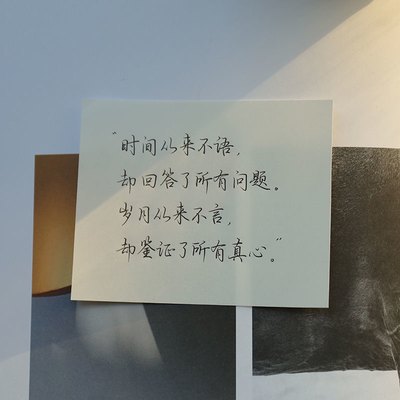 “时间从来不语，
却回答了所有问题。
岁月从来不言，
却鉴证了所有真心。”